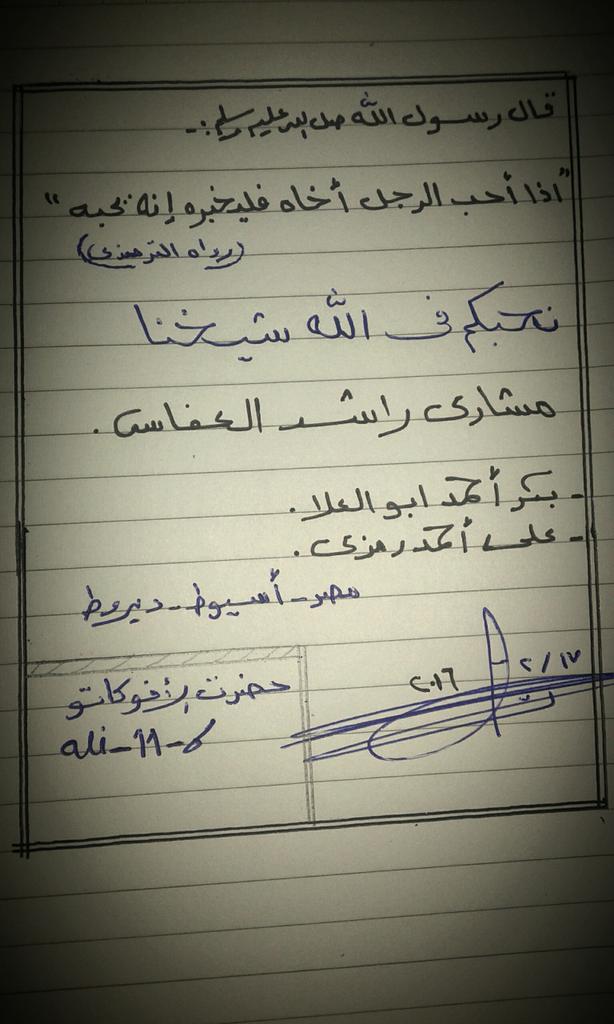 قال رسول الله صلى الله عليه وسلم :-
"اذا أحب الرجل أخاه فليخبره إنه يحبه"
(رواه الترمذى)
نحبكم فى الله شيخنا
مشارى راشد العفاسى .
- بكر أحمد ابو العلا .
- على أحمد رمزى .
مصر - أسيوط - ديروط
٢/١٧
٢٠١٦
حضرت الأفوكاتو
ali-11-